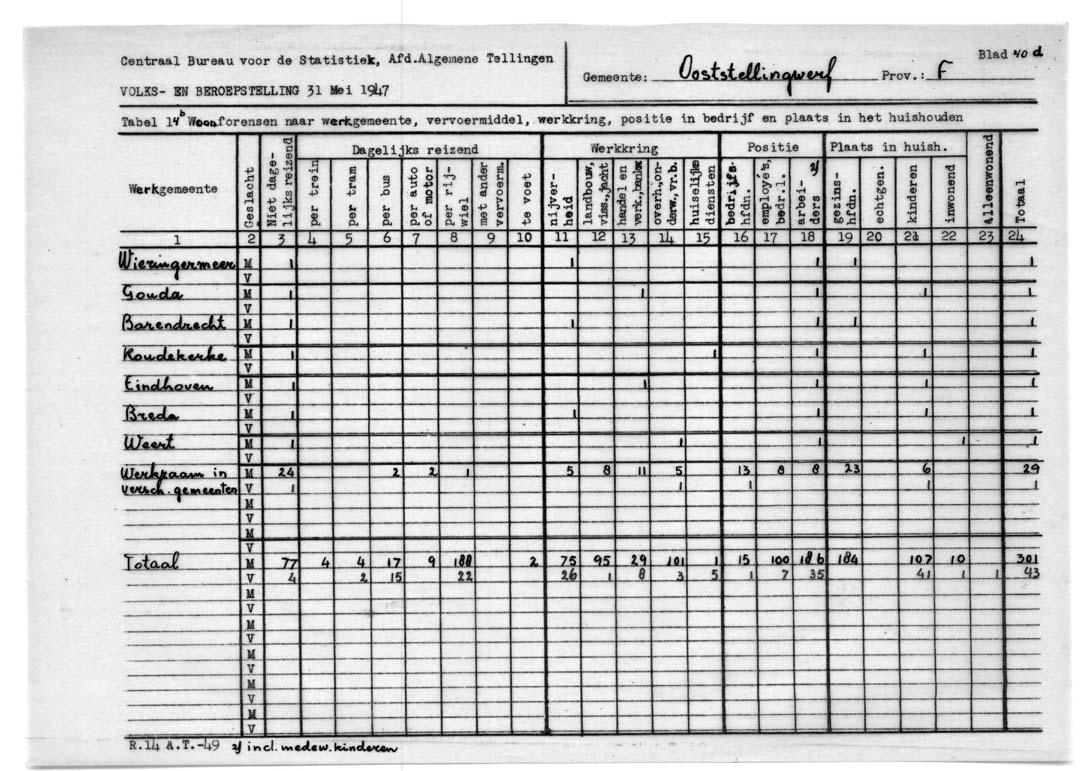 Centraal Bureau voor de Statistiek, Afd.Algemene Tellingen
VOLKS- EN BEROEPSTELLING 31 Mei 1947
Gemeente: Ooststellingwerf Prov.: F
Blad 40 d
Tabel 14b Woonforensen naar werkgemeente, vervoermiddel, werkkring, positie in bedrijf en plaats in het huishouden
Werkgemeente Geslacht Niet dage-lijks reizend Dagelijks reizend Werkkring Positie Plaats in huish. Alleenwonend Totaal
per trein per tram per bus per auto of motor per rij-wiel met ander vervoerm. te voet nijver-heid landbouw, viss.,jacht handel en verk.,bankw overh.,on-derw,vr.b. huiselijke diensten bedrijfs-hfdn. employé's, bedr.l. arbei-ders 2) gezins-hfdn. echtgen. kinderen inwonend
1 2 3 4 5 6 7 8 9 10 11 12 13 14 15 16 17 18 19 20 21 22 23 24
Wieringermeer M 1 1 1 1 1
V
Gouda M 1 1 1 1 1
V
Barendrecht M 1 1 1 1 1
V
Koudekerke M 1 1 1 1 1
V
Eindhoven M 1 1 1 1 1
V
Breda M 1 1 1 1 1
V
Weert M 1 1 1 1 1
V
Werkzaam in M 24 2 2 1 5 8 11 5 13 8 8 23 6 29
versch. gemeenten V 1 1 1 1 1
M
V
M
V
Totaal M 77 4 4 17 9 188 2 75 95 29 101 1 15 100 186 184 107 10 301
V 4 2 15 22 26 1 8 3 5 1 7 35 41 1 1 43
M
V
M
V
M
V
M
V
M
V
R.14 A.T.-49 2) incl. medew. kinderen